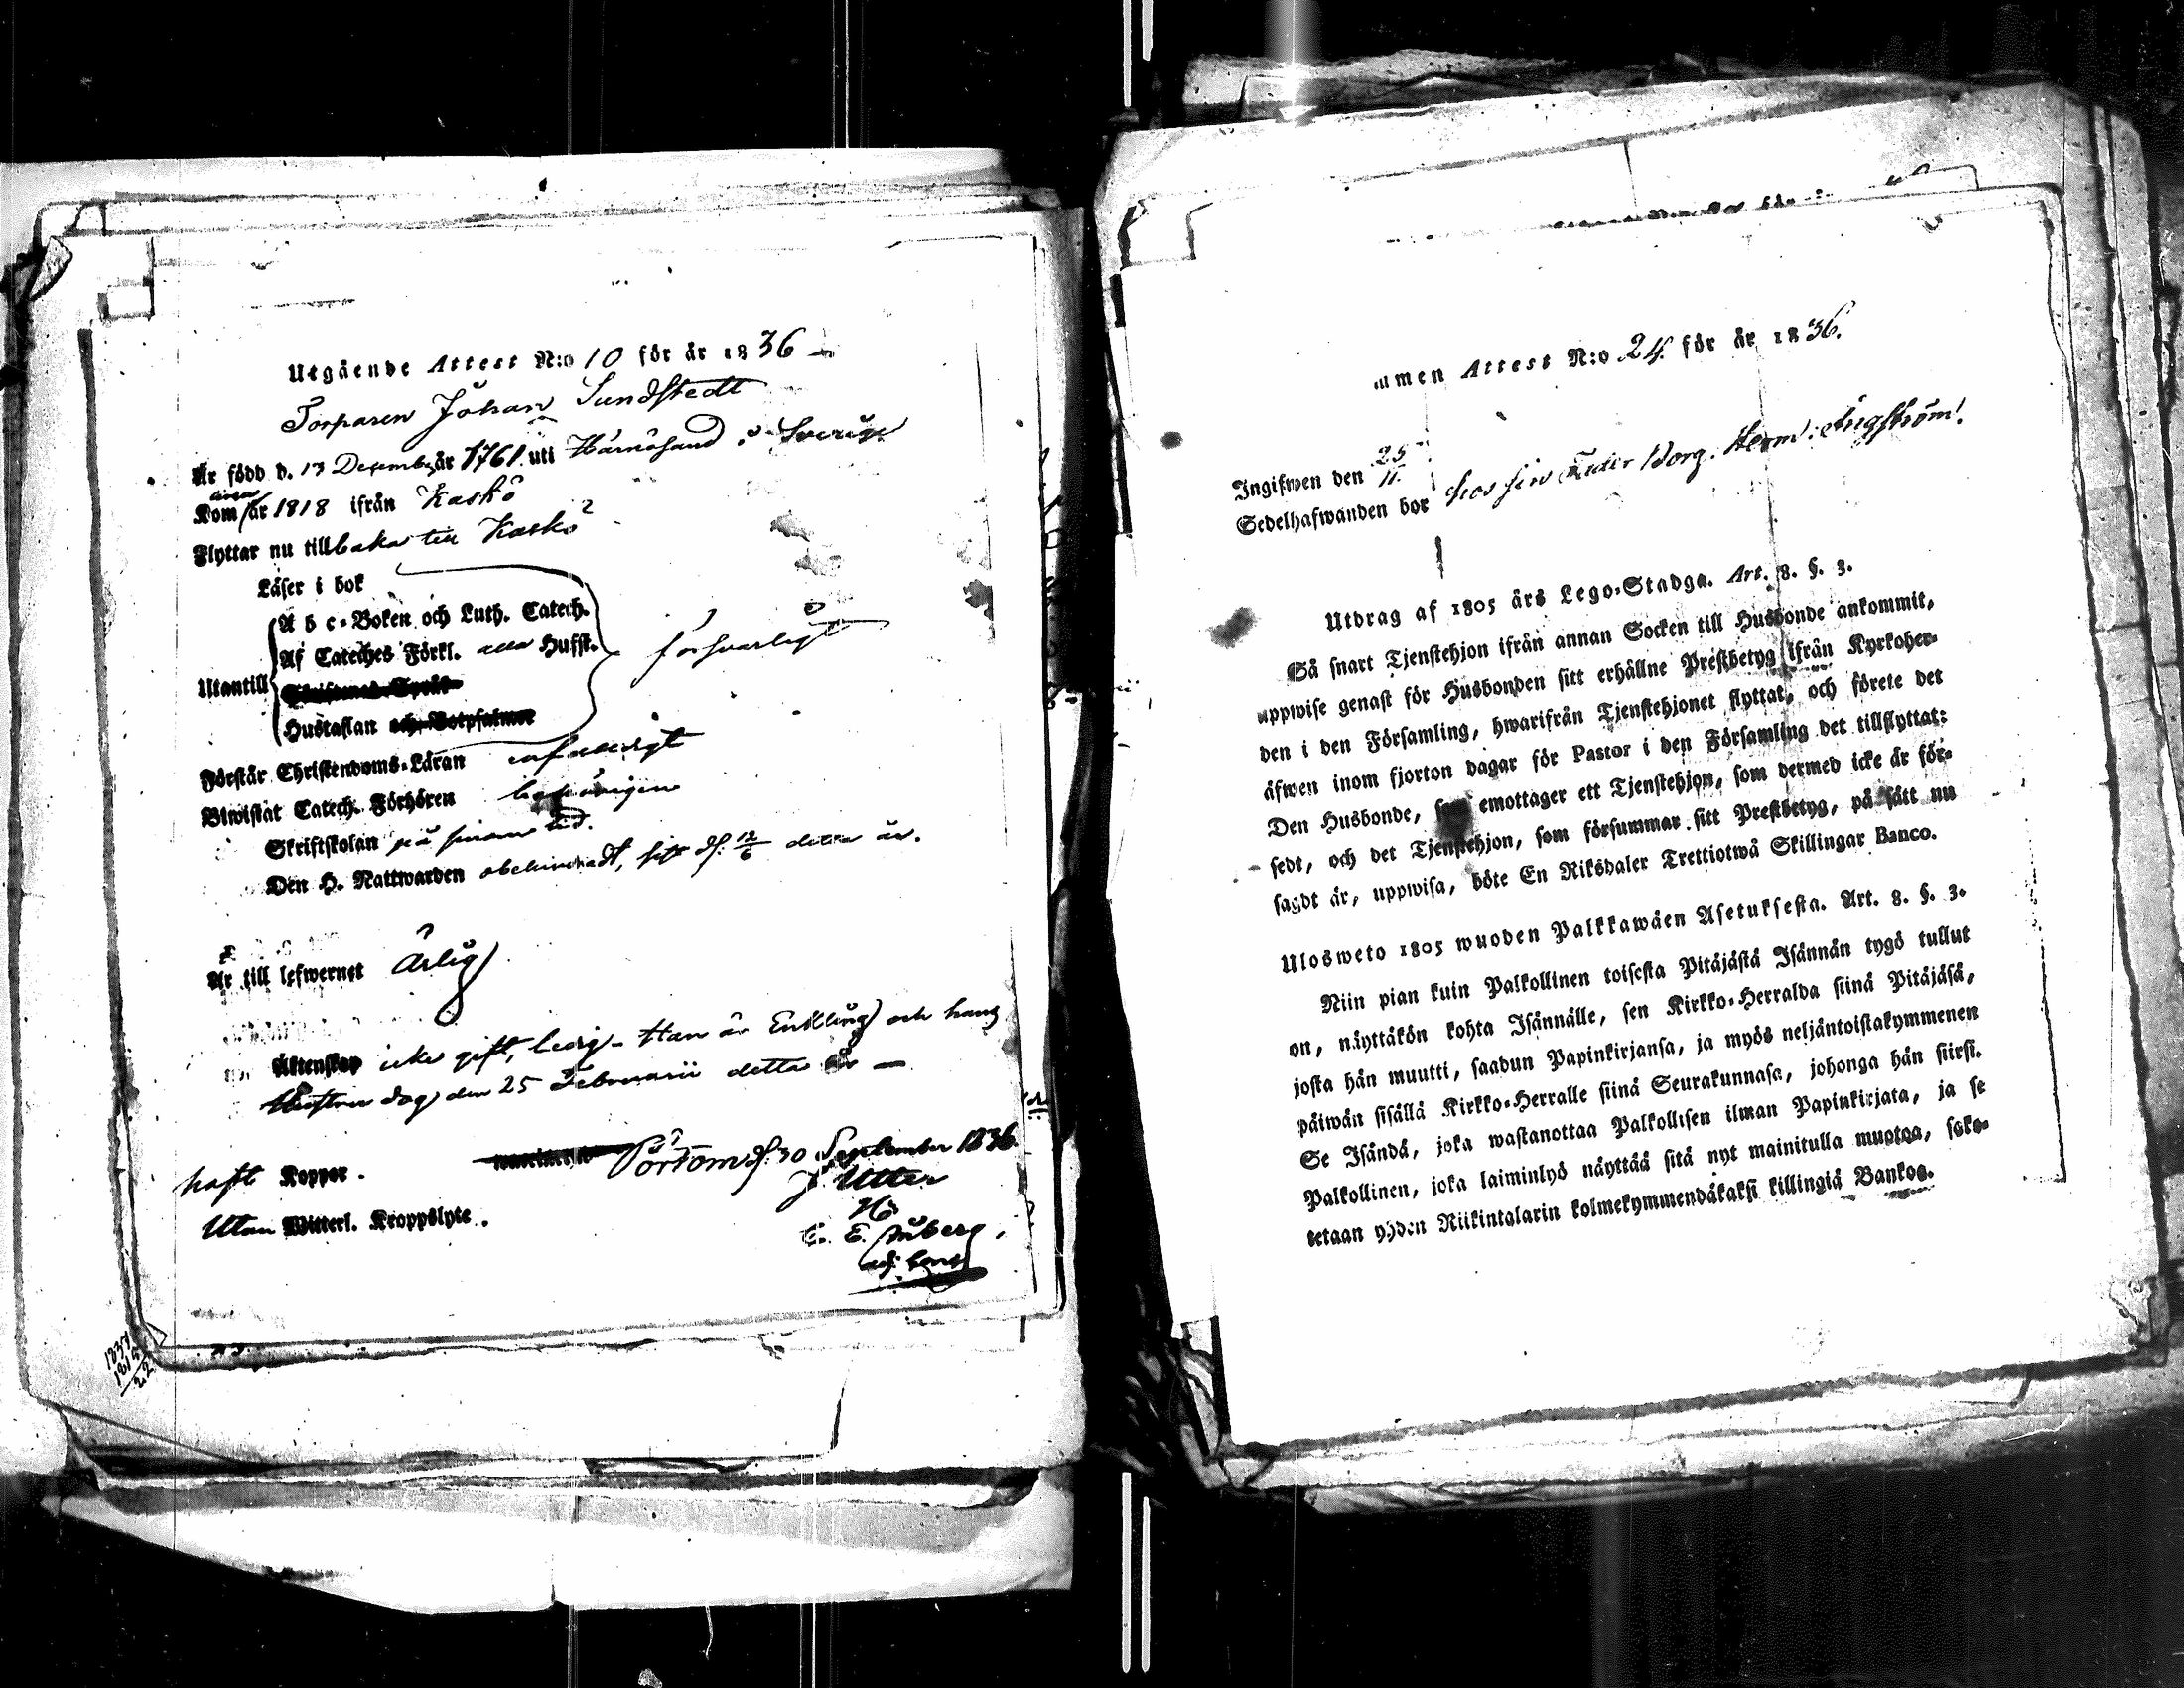 Utgående Attest N:o 10 för år 1836
Torparen Johan Sundstedt
Är född d. 13 Decemb. år 1761 uti Hernösand i Sverige
Kom år 1818 ifrån Kaskö
Flyttar nu tillbaka till Kaskö
Läser i bok
A b c-Boken och Luth. Catech.
Af Cateches Förkl. alla Hufst.
försvarligt
Utantill
Hustaflan och Botpsalmer
Förstår Christendoms-Läran enfaldigt
Biwistat Catech. Förhören
Skriftskolan på sinom tid.
Den H. Nattwarden obehindradt, sist d. 12/6 detta år.
Är till lefwernet Ärlig
Äktenskap icke gift, ledig - Han är Enkling och hans
Hustru dog den 25 Februarii detta år
Pörtom d. 30 September 1836.
haft Koppor.
J Utter
Utan Witterl. Kroppslyte.
1837
1815
22
men Attest N:o 24 för år 1836.
Ingifwen den 25/11
Sedelhafwanden bor hos sin Borg. Herm: Ängström!
Utdrag af 1805 års Lego-Stadga. Art. 8. §. 3.
Så snart Tjenstehjon ifrån annan Socken till Husbonde ankommit,
uppwise genast för Husbonden sitt erhållne Prestbetyg ifrån Kyrkoher-
den i den Församling, hwarifrån Tjenstehjonet flyttat, och förete det
äfwen inom fjorton dagar för Pastor i den Församling det tillflyttat:
Den Husbonde, som emottager ett Tjenstehjon, som dermed icke är för-
sedt, och det Tjenstehjon, som försummar sitt Prestbetyg, på sätt nu
sagdt är, uppwisa, böte En Riksdaler Trettiotwå Skillingar Banco.
Ulosweto 1805 wuoden Palkkawäen Asetuksesta. Art. 8. §. 3.
Niin pian kuin Palkollinen toisesta Pitäjästä Isännän tygö tullut
on, näyttäkön kohta Isännälle, sen Kirkko-Herralda siinä Pitäjäsä,
josta hän muutti, saadun Papinkirjansa, ja myös neljäntoistakymmenen
päiwän sisällä Kirkko-Herralle siinä Seurakunnasa, johonga hän siirsi.
Se Isändä, joka wastanottaa Palkollisen ilman Papinkirjata, ja se
Palkollinen, joka laiminlyö näyttää sitä nyt mainitulla muotoa, sako-
tetaan yhden Riikintalarin kolmekymmendäkaksi killingiä Bankoa.